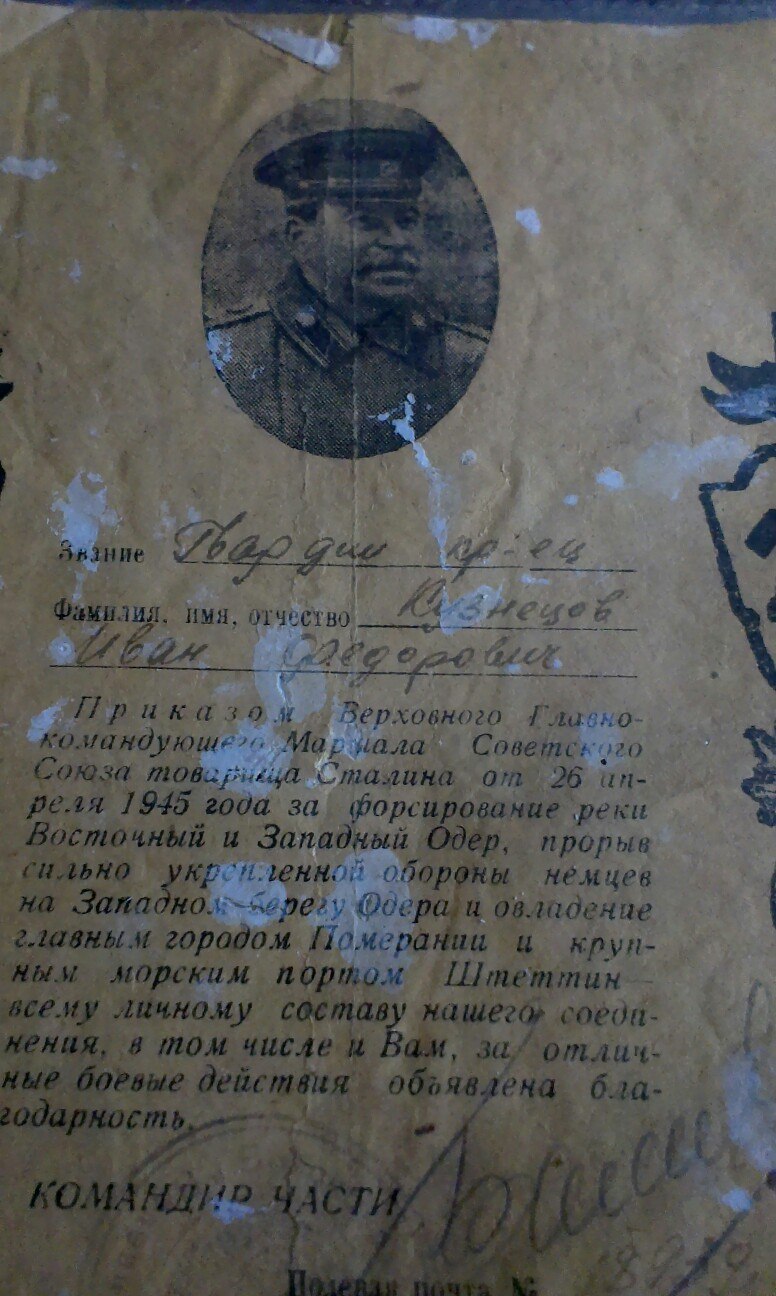 Звание Гвардии кр-ец
Фамилия, имя, отчество Кузнецов
Иван Федорович
Приказом Верховного Главно-
командующего Маршала Советского
Союза товарища Сталина от 26 ап-
реля 1945 года за форсирование реки
Восточный и Западный Одер, прорыв
сильно укрепленной обороны немцев
на Западном берегу Одера и овладение
главным городом Померании и круп-
ным морским портом Штеттин—
всему личному составу нашего соеди-
нения, в том числе и Вам, за отлич-
ные боевые действия объявлена бла-
годарность.
КОМАНДИР ЧАСТИ
Полевая почта №